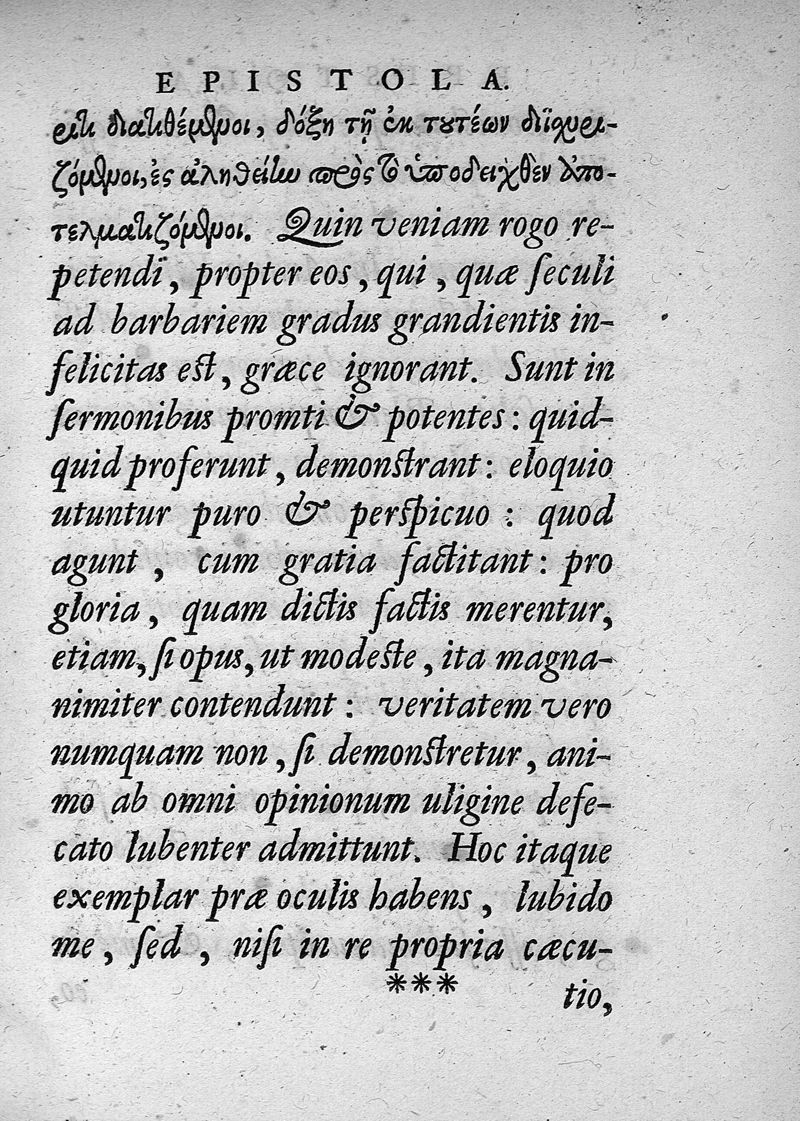 EPISTOLA.
ριτι διατιθέμενοι, δόξῃ τῇ ἐκ τουτέων διϊσχυρι-
ζόμενοι, ἐς ἀληθείην πρὸς τὸ ὑποδειχθὲν ἀπο-
τελματιζόμενοι. Quin veniam rogo re-
petendi, propter eos, qui, quæ ſeculi
ad barbariem gradus grandientis in-
felicitas eſt, græce ignorant. Sunt in
ſermonibus promti & potentes: quid-
quid proferunt, demonſtrant: eloquio
utuntur puro & perſpicuo: quod
agunt, cum gratia factitant: pro
gloria, quam dictis factis merentur,
etiam, ſi opus, ut modeſte, ita magna-
nimiter contendunt: veritatem vero
numquam non, ſi demonſtretur, ani-
mo ab omni opinionum uligine defe-
cato lubenter admittunt. Hoc itaque
exemplar præ oculis habens, lubido
me, ſed, niſi in re propria cæcu-
*** tio,